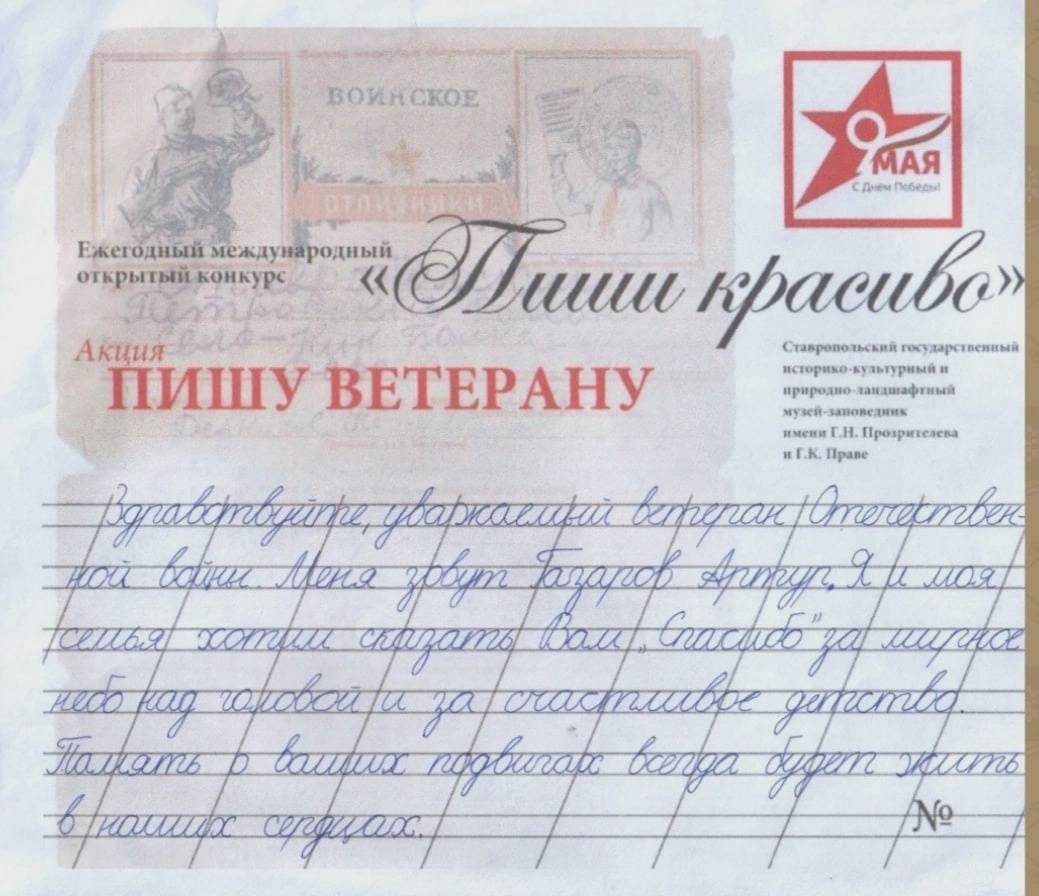 ВОИНСКОЕ
9 МАЯ
С Днем Победы!
Ежегодный международный
открытый конкурс
«Пиши красиво»
Акция
ПИШУ ВЕТЕРАНУ
Ставропольский государственный
историко-культурный и
природно-ландшафтный
музей-заповедник
имени Г.Н. Прозрителева
и Г.К. Праве
Здравствуйте, уважаемый ветеран Отечествен-
ной войны. Меня зовут Газаров Артур. Я и моя
семья хотим сказать Вам „Спасибо" за мирное
небо над головой и за счастливое детство.
Память о ваших подвигах всегда будет жить
в наших сердцах.
№